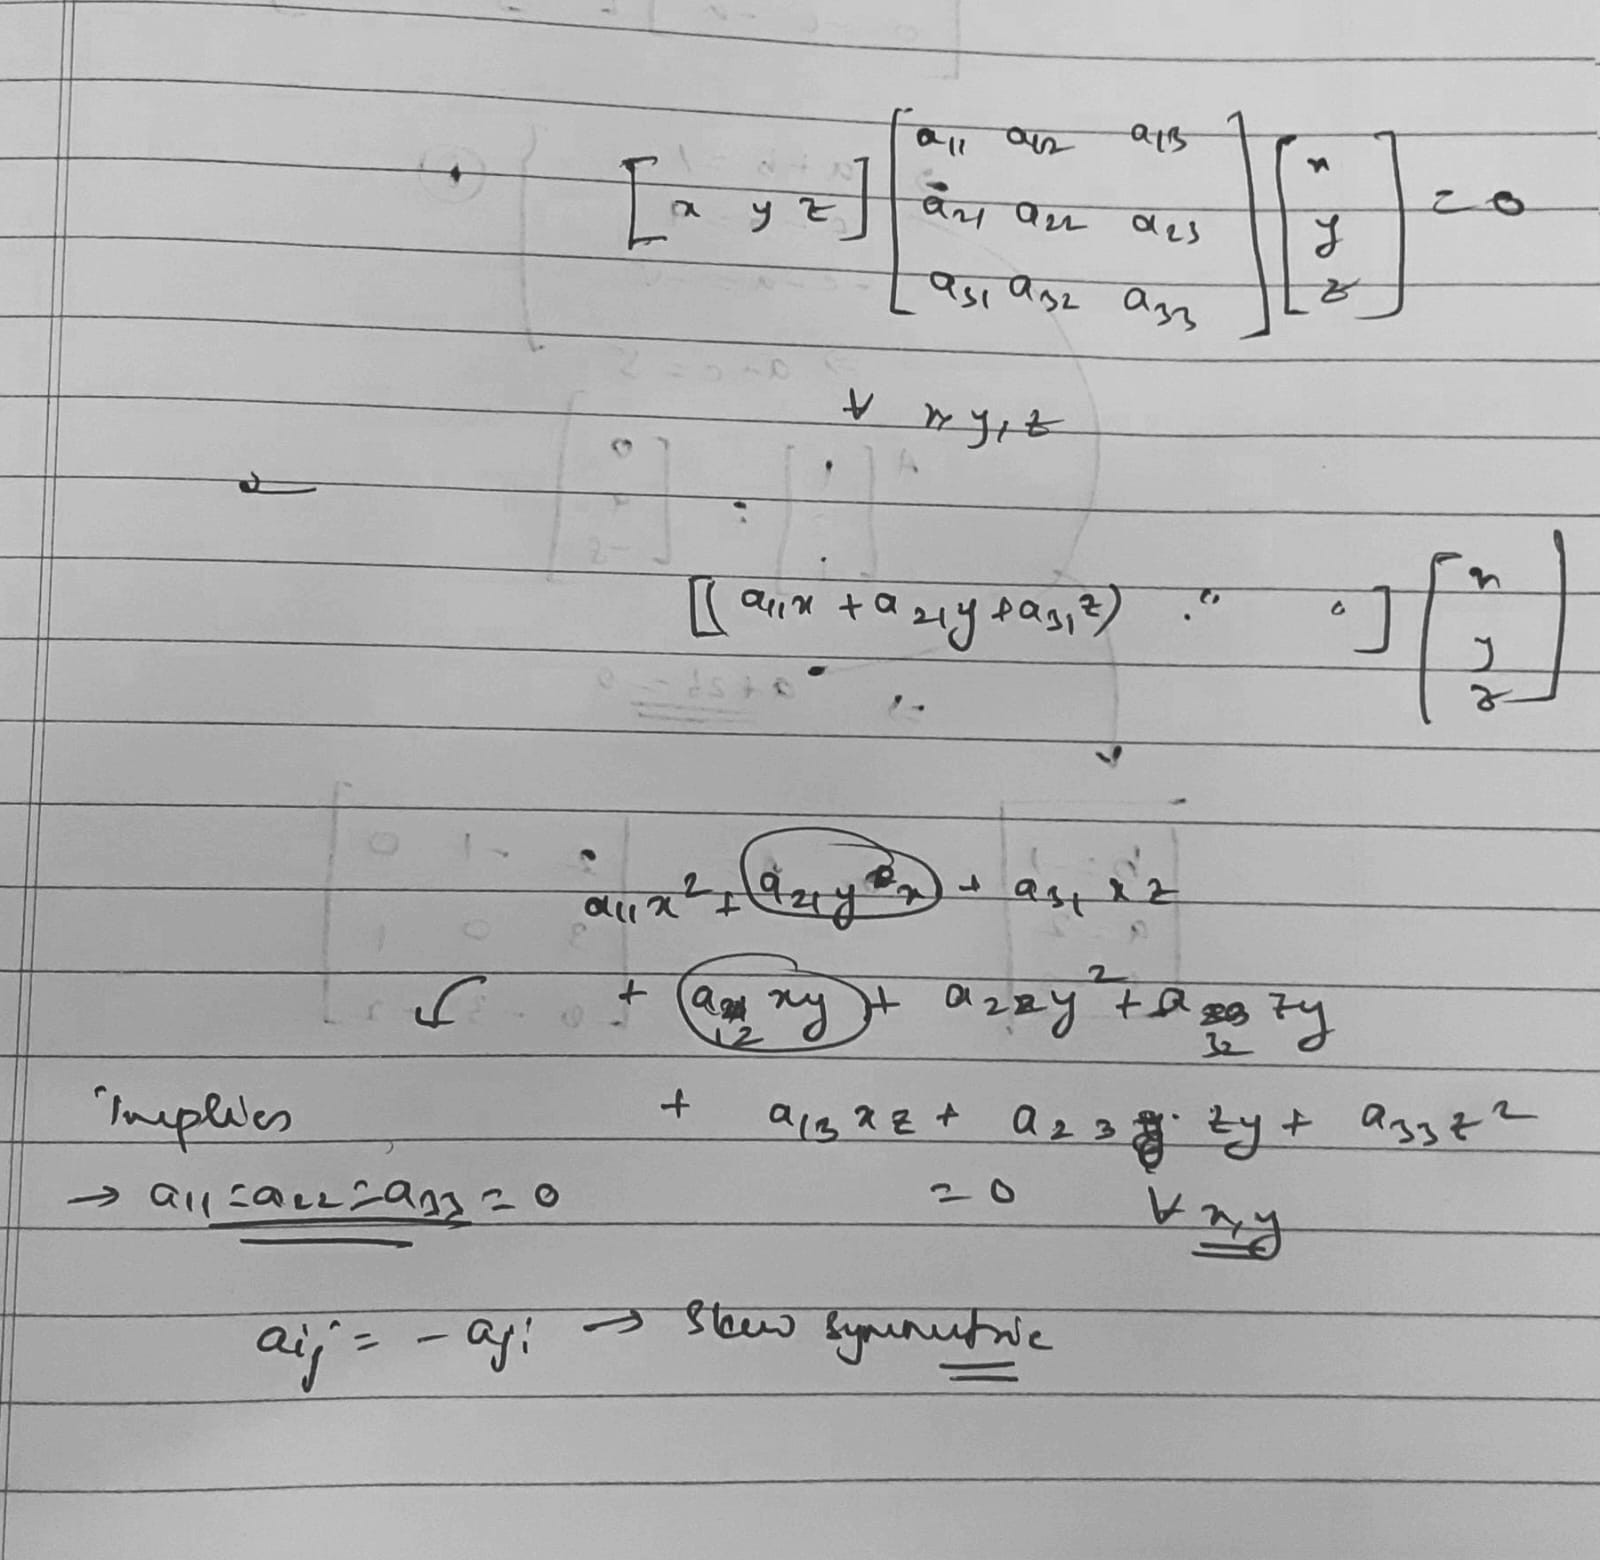 [x y z] [a11 a12 a13 a21 a22 a23 a31 a32 a33] [x y z] = 0
∀ x y, z
[(a11x + a21y + a31z) . " .] [x y z]
a11x² + a21yx + a31xz
+ a12 xy + a22y² + a32 zy
+ a13xz + a23 zy + a33z²
Implies
→ a11 = a22 = a33 = 0
= 0 ∀ x, y
aij = - aji → Skew symmetric